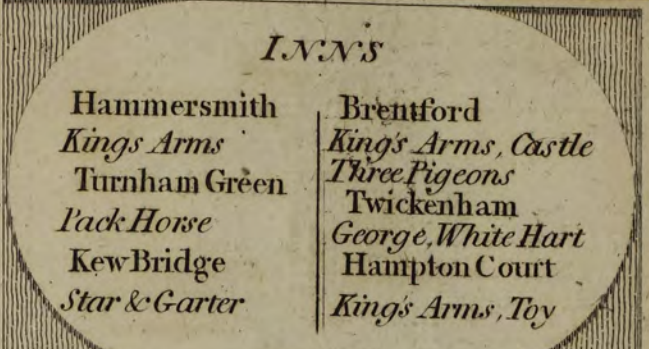 INNS
Hammersmith
Kings Arms
Turnham Green
Pack Horse
Kew Bridge
Star & Garter
Brentford
King's Arms, Castle
Three Pigeons
Twickenham
George, White Hart
Hampton Court
King's Arms, Toy